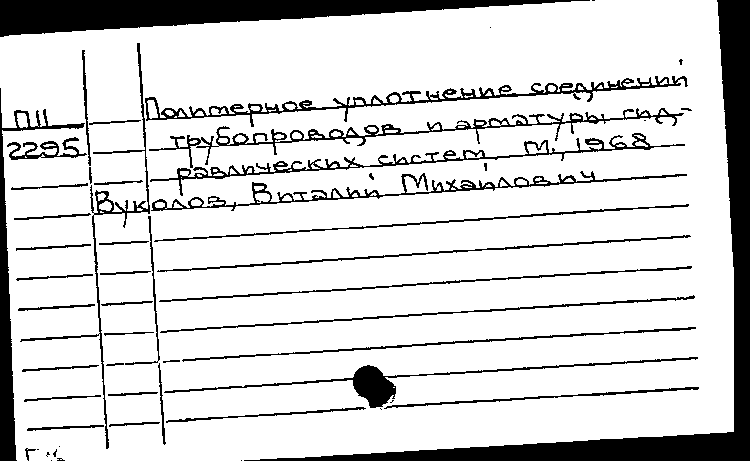 П11
2295
Полимерное уплотнение соединений
трубопроводов и арматуры гид-
равлических систем. М., 1968
Вуколов, Виталий Михайлович